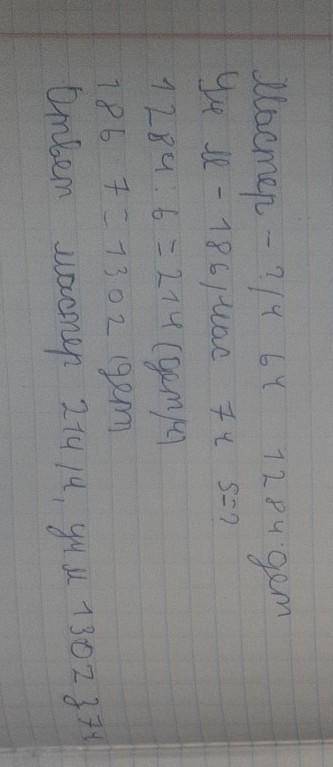 Мастер - ?/ч 6ч 1284 дет
Уч м - 186/час 7ч S=?
1284 : 6 = 214 (дет/ч)
186 7 = 1302 (дет
Ответ мастер 214/ч, уч м 1302 } 7ч